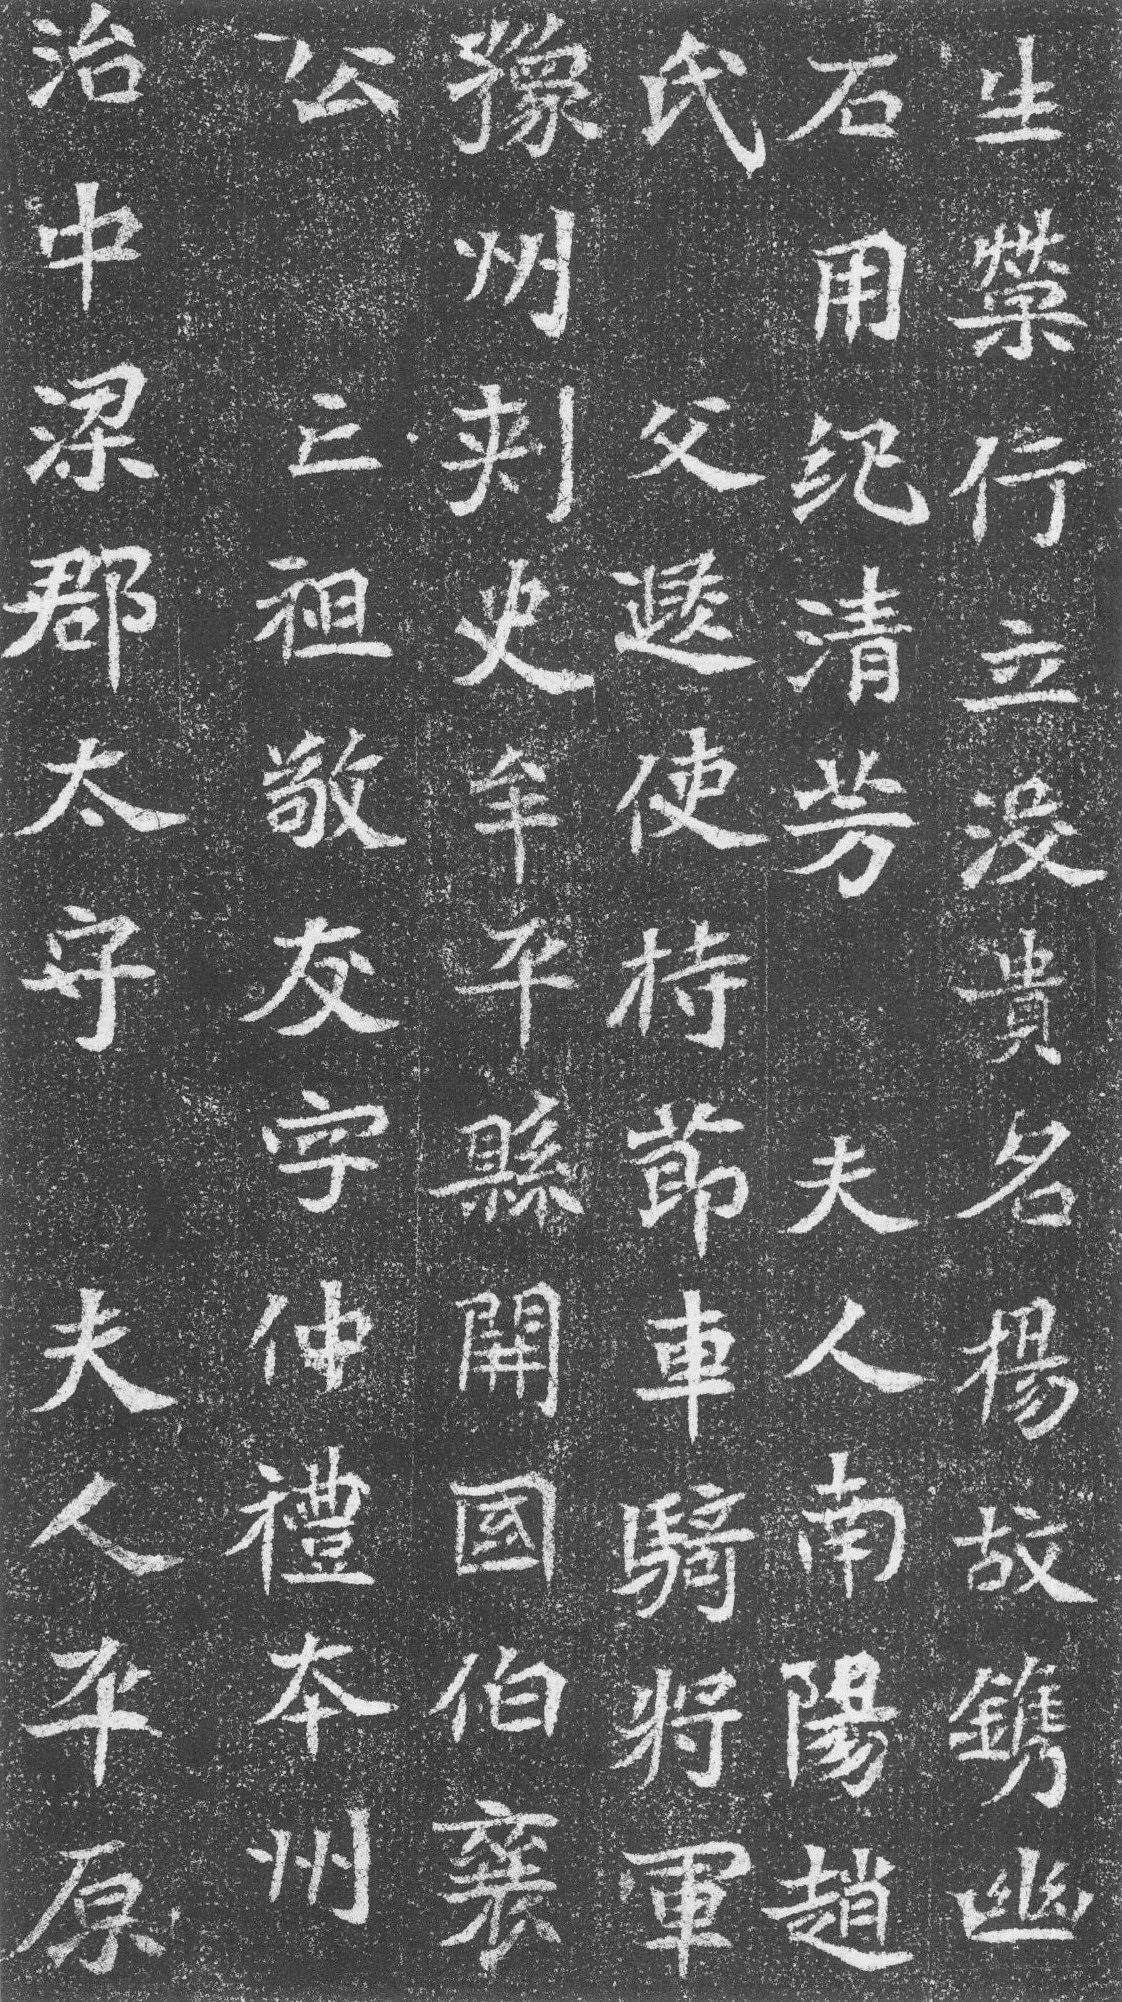 生榮行立没貴名楊故鐫幽
石用紀清芳 夫人南陽趙
氏 父遐使持節車騎將軍
豫州刾史牟平縣開國伯襄
公 亡祖敬友字仲禮本州
治中梁郡太守 夫人平原